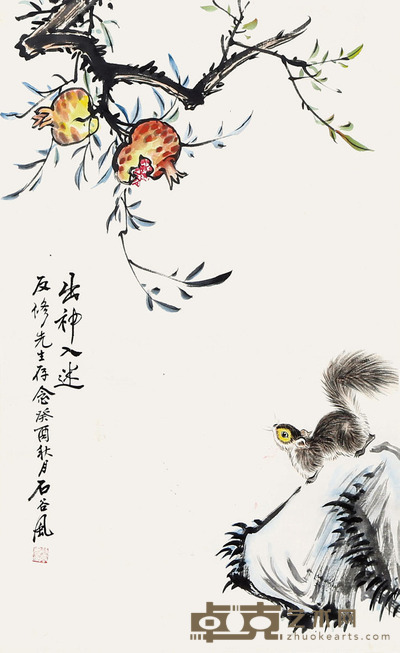 出神入迷
反修先生存念癸酉秋月石谷风
卓克艺术网
zhuokearts.com